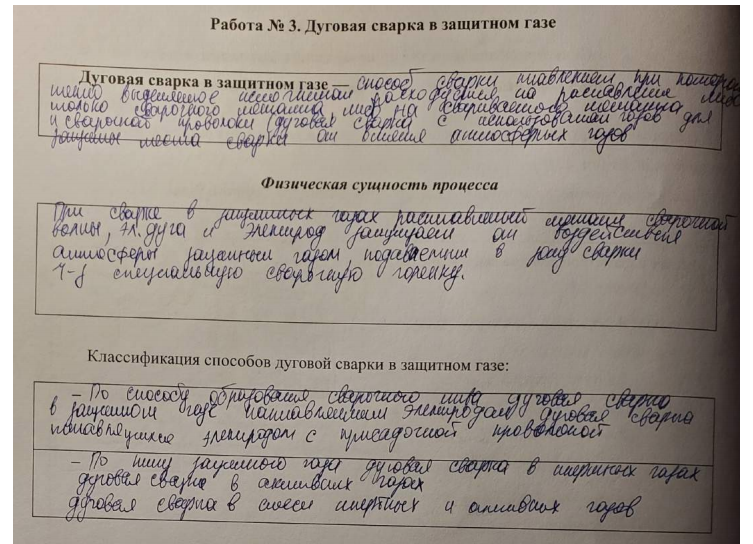 Работа № 3. Дуговая сварка в защитном газе
Дуговая сварка в защитном газе — способ сварки плавлением при котором
тепло выделяемое расходуется на расплавление либо
только сварочного металла либо на свариваемого металла
и сварочной проволоки дуговая сварка с использованием газов для
защиты места сварки от влияния атмосферных газов
Физическая сущность процесса
При сварке в защитных газах расплавленный металл сварочной
ванны, эл. дуга и электрод защищает от воздействия
атмосферы защитным газом, подаваемым в зону сварки
ч-з специальную сварочную горелку.
Классификация способов дуговой сварки в защитном газе:
– По способу образования сварочного шва дуговая сварка
в защитном газе электродом дуговая сварка
электродом с присадочной проволокой
– По типу защитного газа дуговая сварка в инертных газах
дуговая сварка в активных газах
дуговая сварка в смеси инертных и активных газов